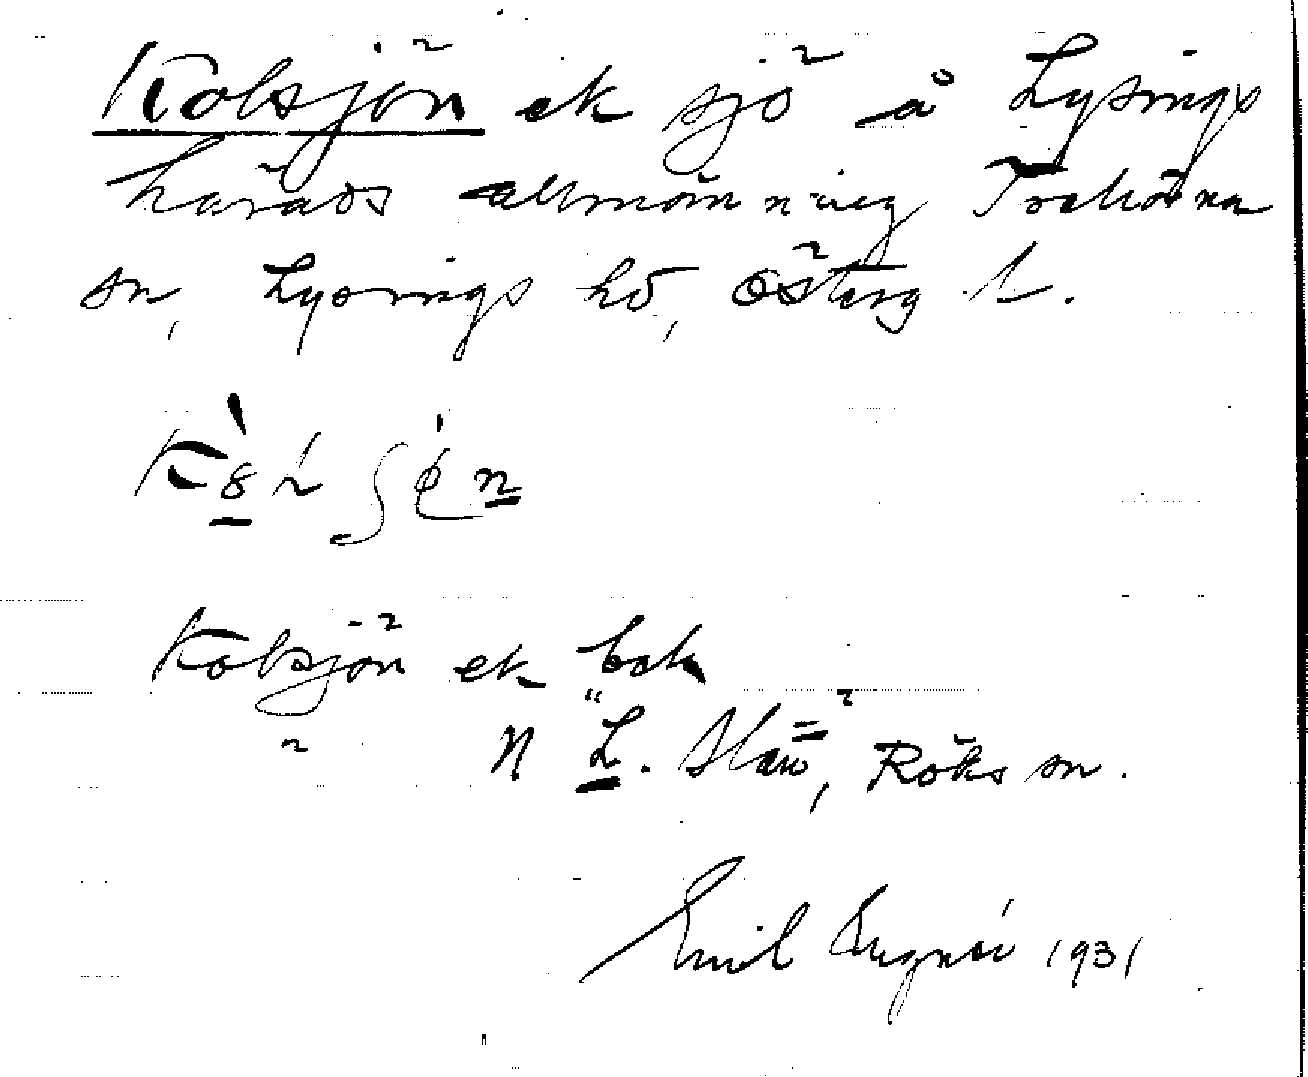 Kolsjön ek sjö å Lysings
härads allmänning Trehörna
sn, Lysings hd, Österg l.
Kolsjön ek bak
N L. Slän, Röks sn.
Emil 1931